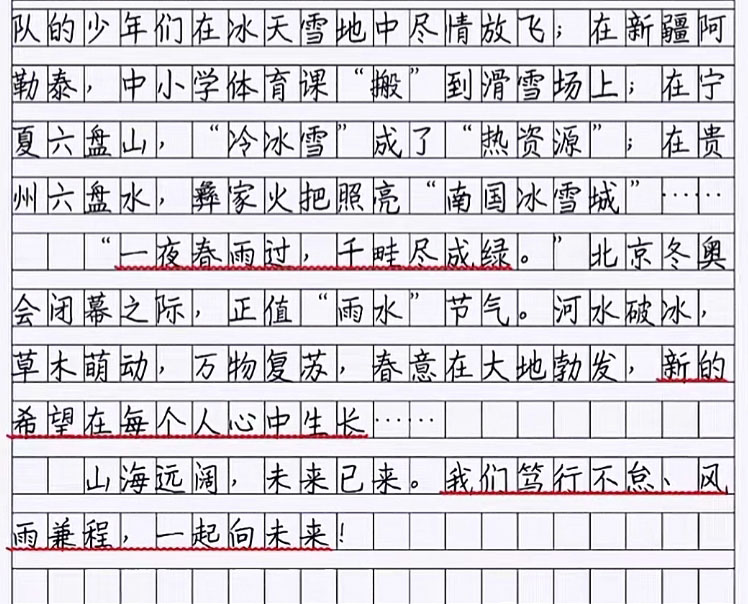 队的少年们在冰天雪地中尽情放飞；在新疆阿
勒泰，中小学体育课“搬”到滑雪场上；在宁
夏六盘山，“冷冰雪”成了“热资源”；在贵
州六盘水，彝家火把照亮“南国冰雪城”……
“一夜春雨过，千畦尽成绿。”北京冬奥
会闭幕之际，正值“雨水”节气。河水破冰，
草木萌动，万物复苏，春意在大地勃发，新的
希望在每个人心中生长……
山海远阔，未来已来。我们笃行不怠、风
雨兼程，一起向未来！